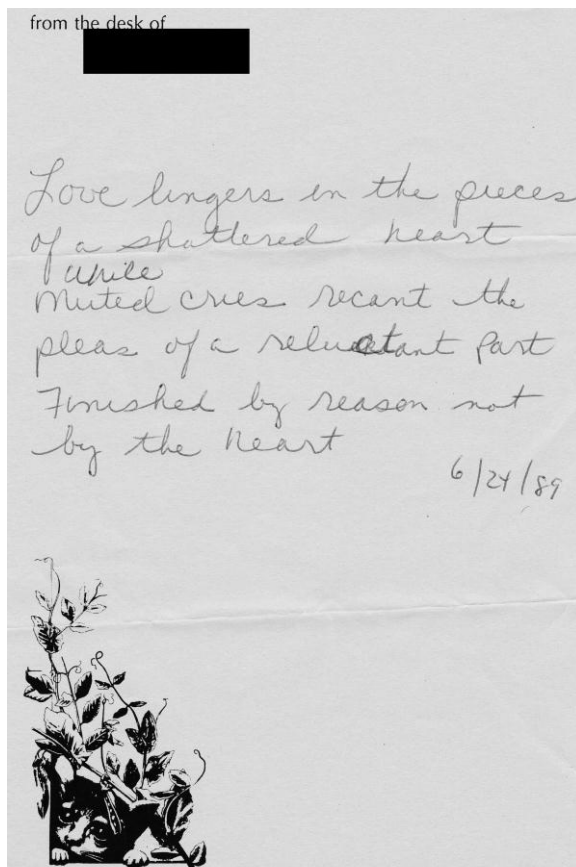 from the desk of
Love lingers in the pieces
of a shattered heart
while
Muted cries recant the
pleas of a reluctant part
Finished by reason not
by the heart
6/24/89